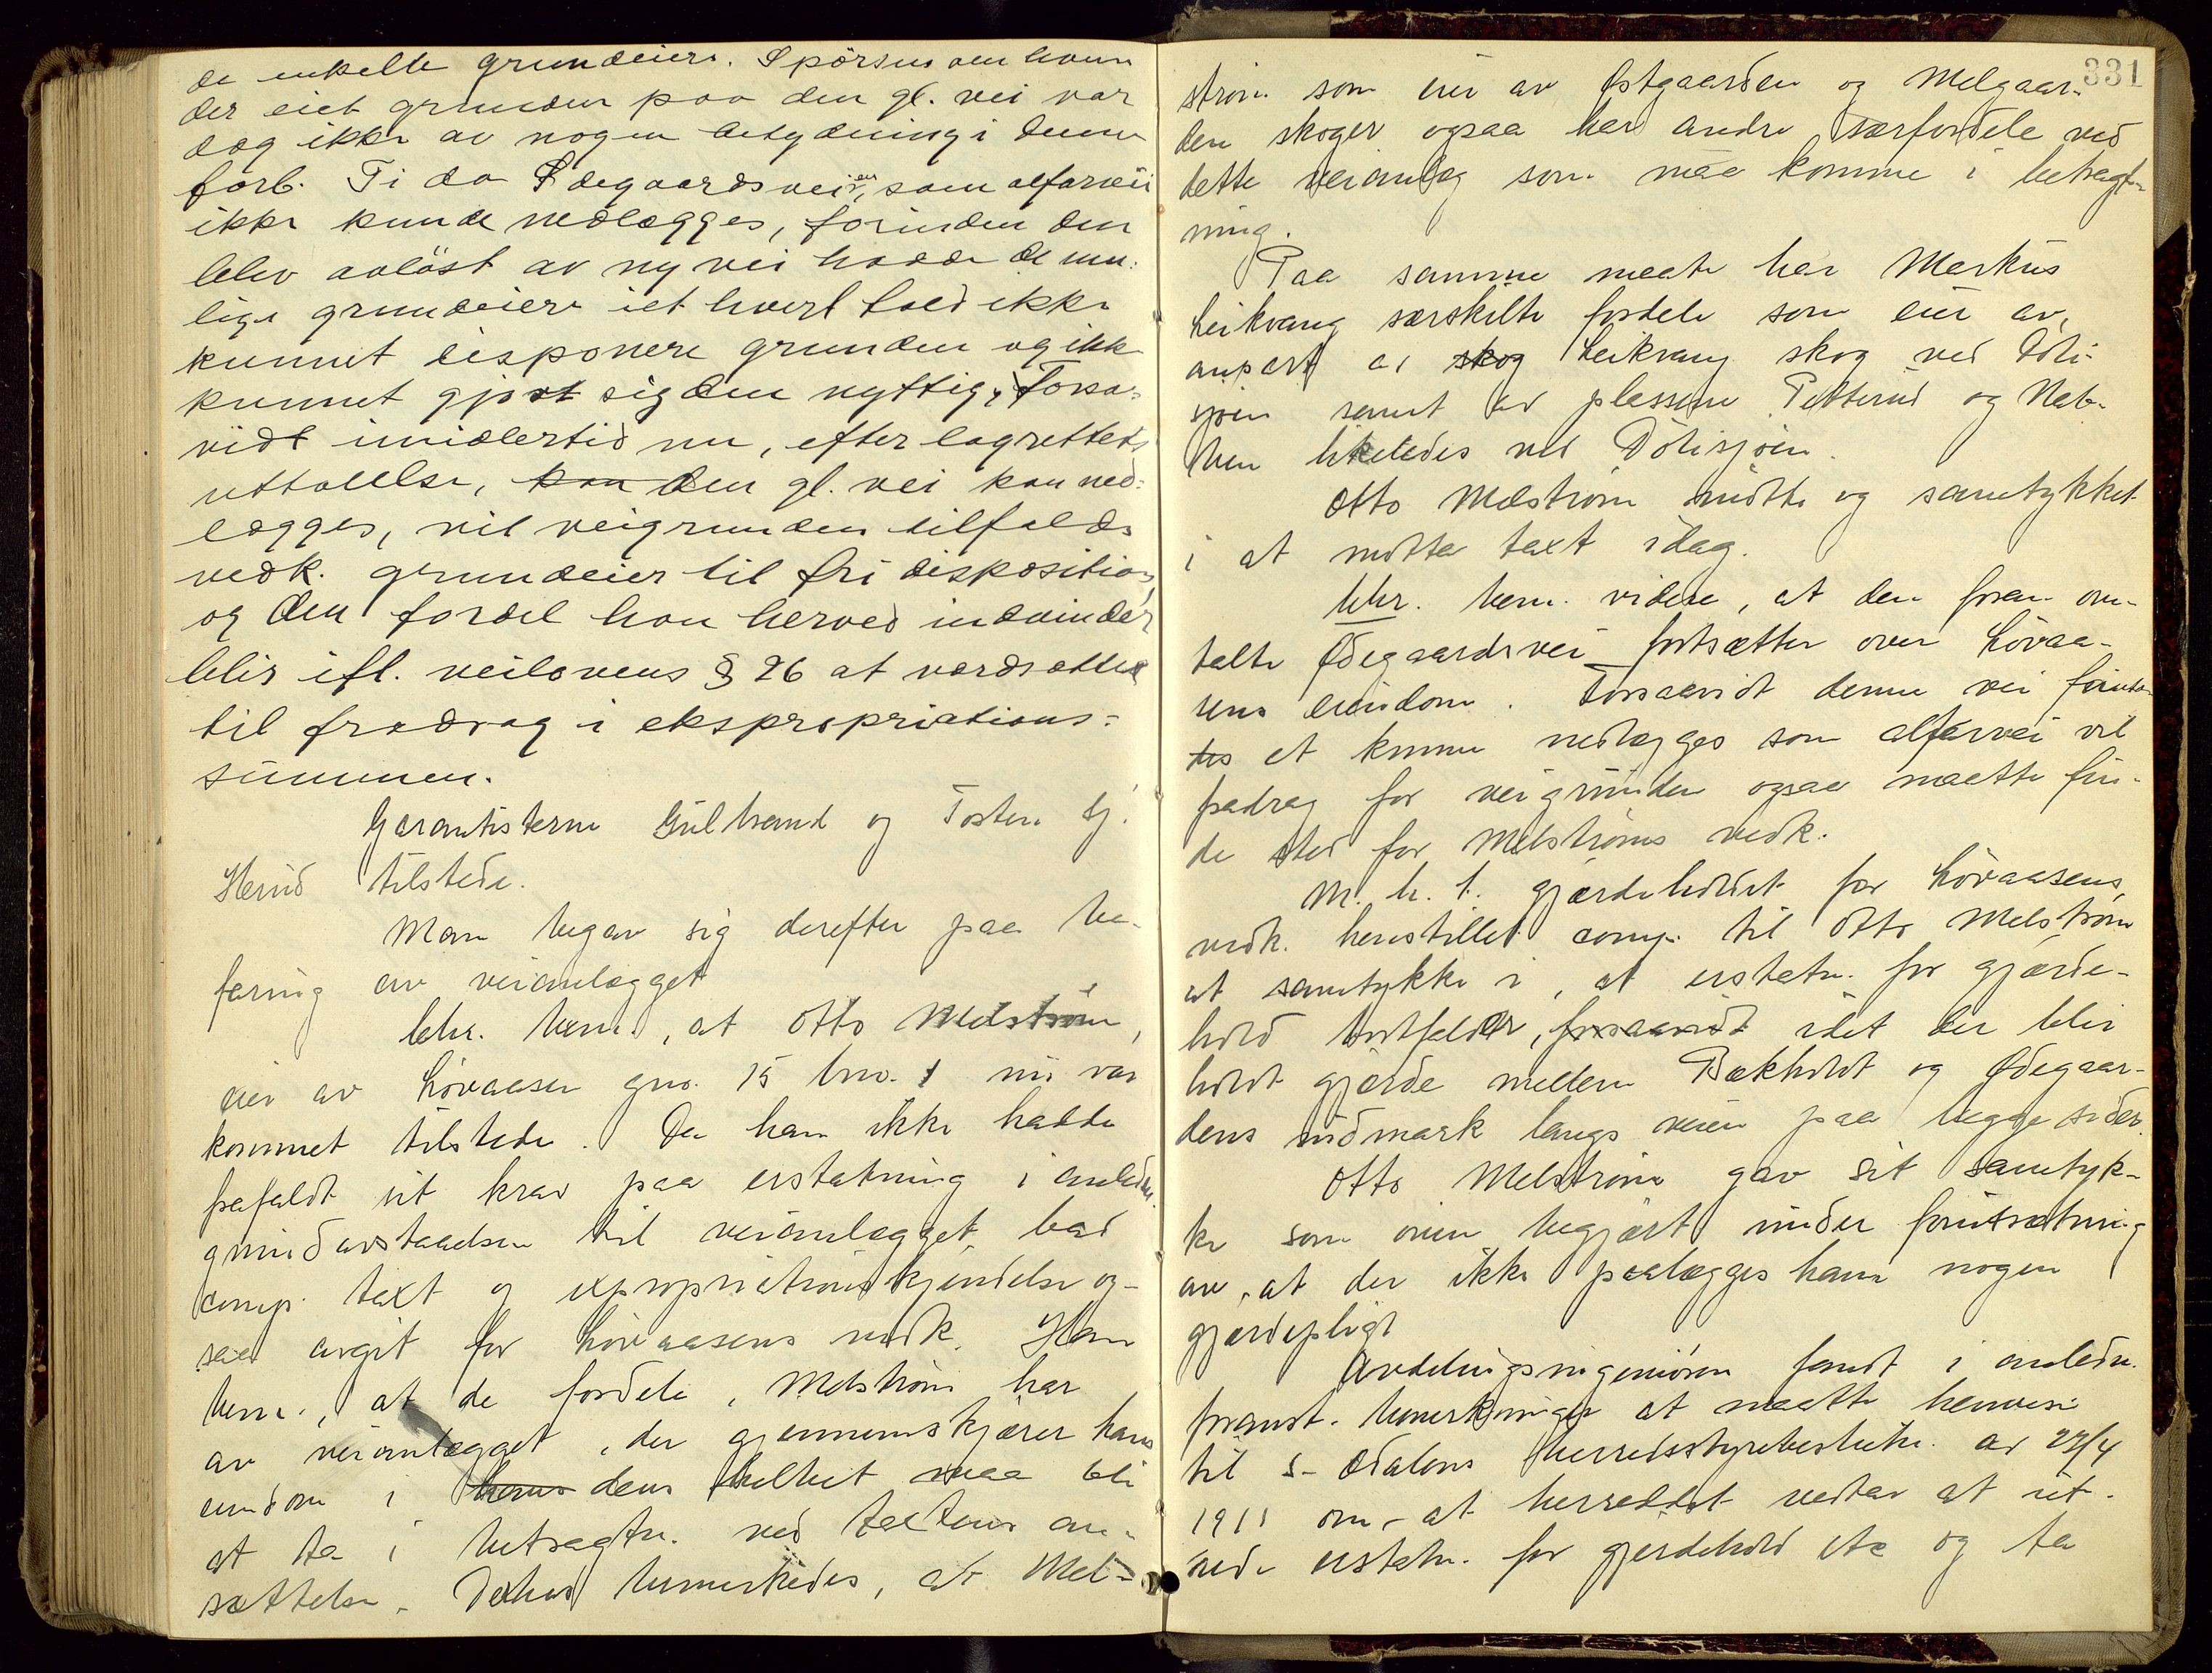 de enkelte grundeiere. Spörsm om hvem
der eiet grunden paa den gl. vei var
dog ikke av nogen betydning i denne
forb. Ti da Ödegaardsveien, som alfarvei
ikke kunde nedlægges, forinden den
blev avlöst av ny vei hadde de mu-
lige grundeiere iet hvert fald ikke
kunnet disponere grunden og ikke
kunnet gjort sig den nyttig. Forsa-
vidt imidlertid nu, efter lagrettets
uttalelse, kan den gl. vei kan ned-
lægges, vil veigrunden tilfalde
vedk. grundeier til fri disposition,
og den fordel han herved indvinder
blir ifl. veilovens § 26 at værdsætte
til fradrag i ekspropriations-
summen.
Garantisterne Gulbrand og Tosten Sj.
Herud tilstede.
Man begav sig derefter paa be-
faring av veianlægget
lehr. bem., at Otto Melström,
eier av Lövaasen gno. 15 bno. 1 nu var
kommet tilstede. Da han ikke hadde
frafaldt sit krav paa erstatning i anledn.
grundavstaaelsen til veianlægget, bad
comp. taxt og expropriationskjendelse og-
saa avgit for Lövaasens vedk. Han
bem., at de fordele, Melström har
av veianlægget, der gjennemskjærer hans
eiendom i hans dens helhet maa bli
at ta i betragtn. ved taxtens an-
sættelse. Derhos bemerkedes, at Mel-
331
ström som eier av Østgaarden og Melgaar-
den skoger ogsaa har andre særfordele ved
dette veianlæg som maa komme i betragt-
ning.
Paa samme maate har Markus
Leikvang særskilte fordele som eier av,
anpart av skog Leikvang skog ved Döli-
sjøen samt av plassene Petterud og Nab-
ben likeledes ved Dölisjöen.
Otto Melström mötte og samtykket
i at motta taxt idag.
lehr. bem. videre, at den foran om-
talte Ødegaardsvei fortsætter over Lövaa-
sens eiendom. Forsaavidt denne vei forutsæ-
tes at kunne nedlægges som alfarvei vil
fradrag for veigrunden ogsaa maatte fin-
de sted for Melströms vedk.
M. h. t. gjærdeholdet for Lövaasens
vedk. henstillet comp. til Otto Melström
at samtykke i, at erstatn. for gjærde-
hold bortfalder, forsaavidt idet der blir
holdt gjærde mellem Bækholdt og Ødegaar-
dens utmark langs veien paa begge sider.
Otto Melström gav sit samtyk-
ke som oven begjært under forutsætning
av, at der ikke paalægges ham nogen
gjærdepligt
Avdelingsingeniören fandt i anledn.
foranst. bemerkninger at maatte henvise
til S- Odalens herredsstyrebeslutn. av 27/4
1911 om, at herredet vedtar at ut-
rede erstatn. for gjerdehold etc og ta